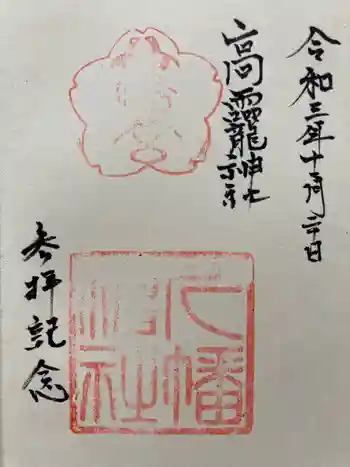 令和三年十一月二十日
高龗神社
八幡
神社
参拝記念